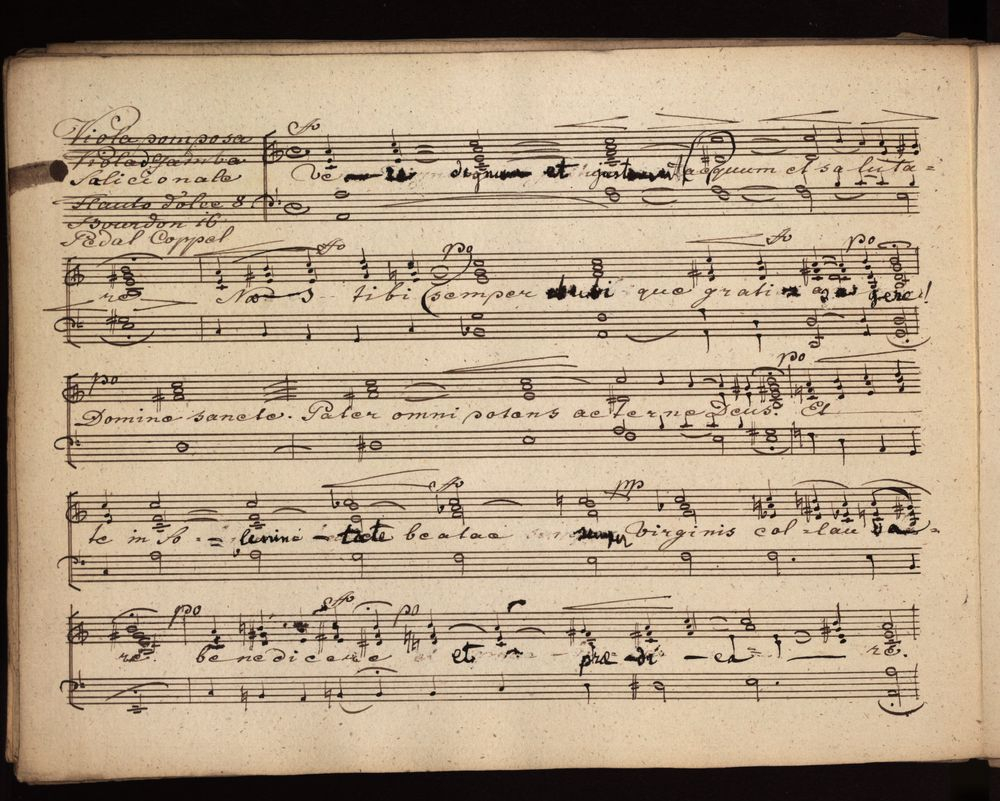 Viola pomposa
Viola d Gamba
Salicionale
Flauto dolce 8
Bourdon 16
Pedal Coppel
fo
Ve - re dignum et justum aequum et saluta=
fo po fo po
re Nos tibi semper et ubique grati as agere!
po po
Domine sancte. Pater omni potens aeterne Deus. Et
fo pp
te in So - lemni - tate beatae semper Virginis col-lau da=
po fo po
re. benedicere et prae-di-ca=re.